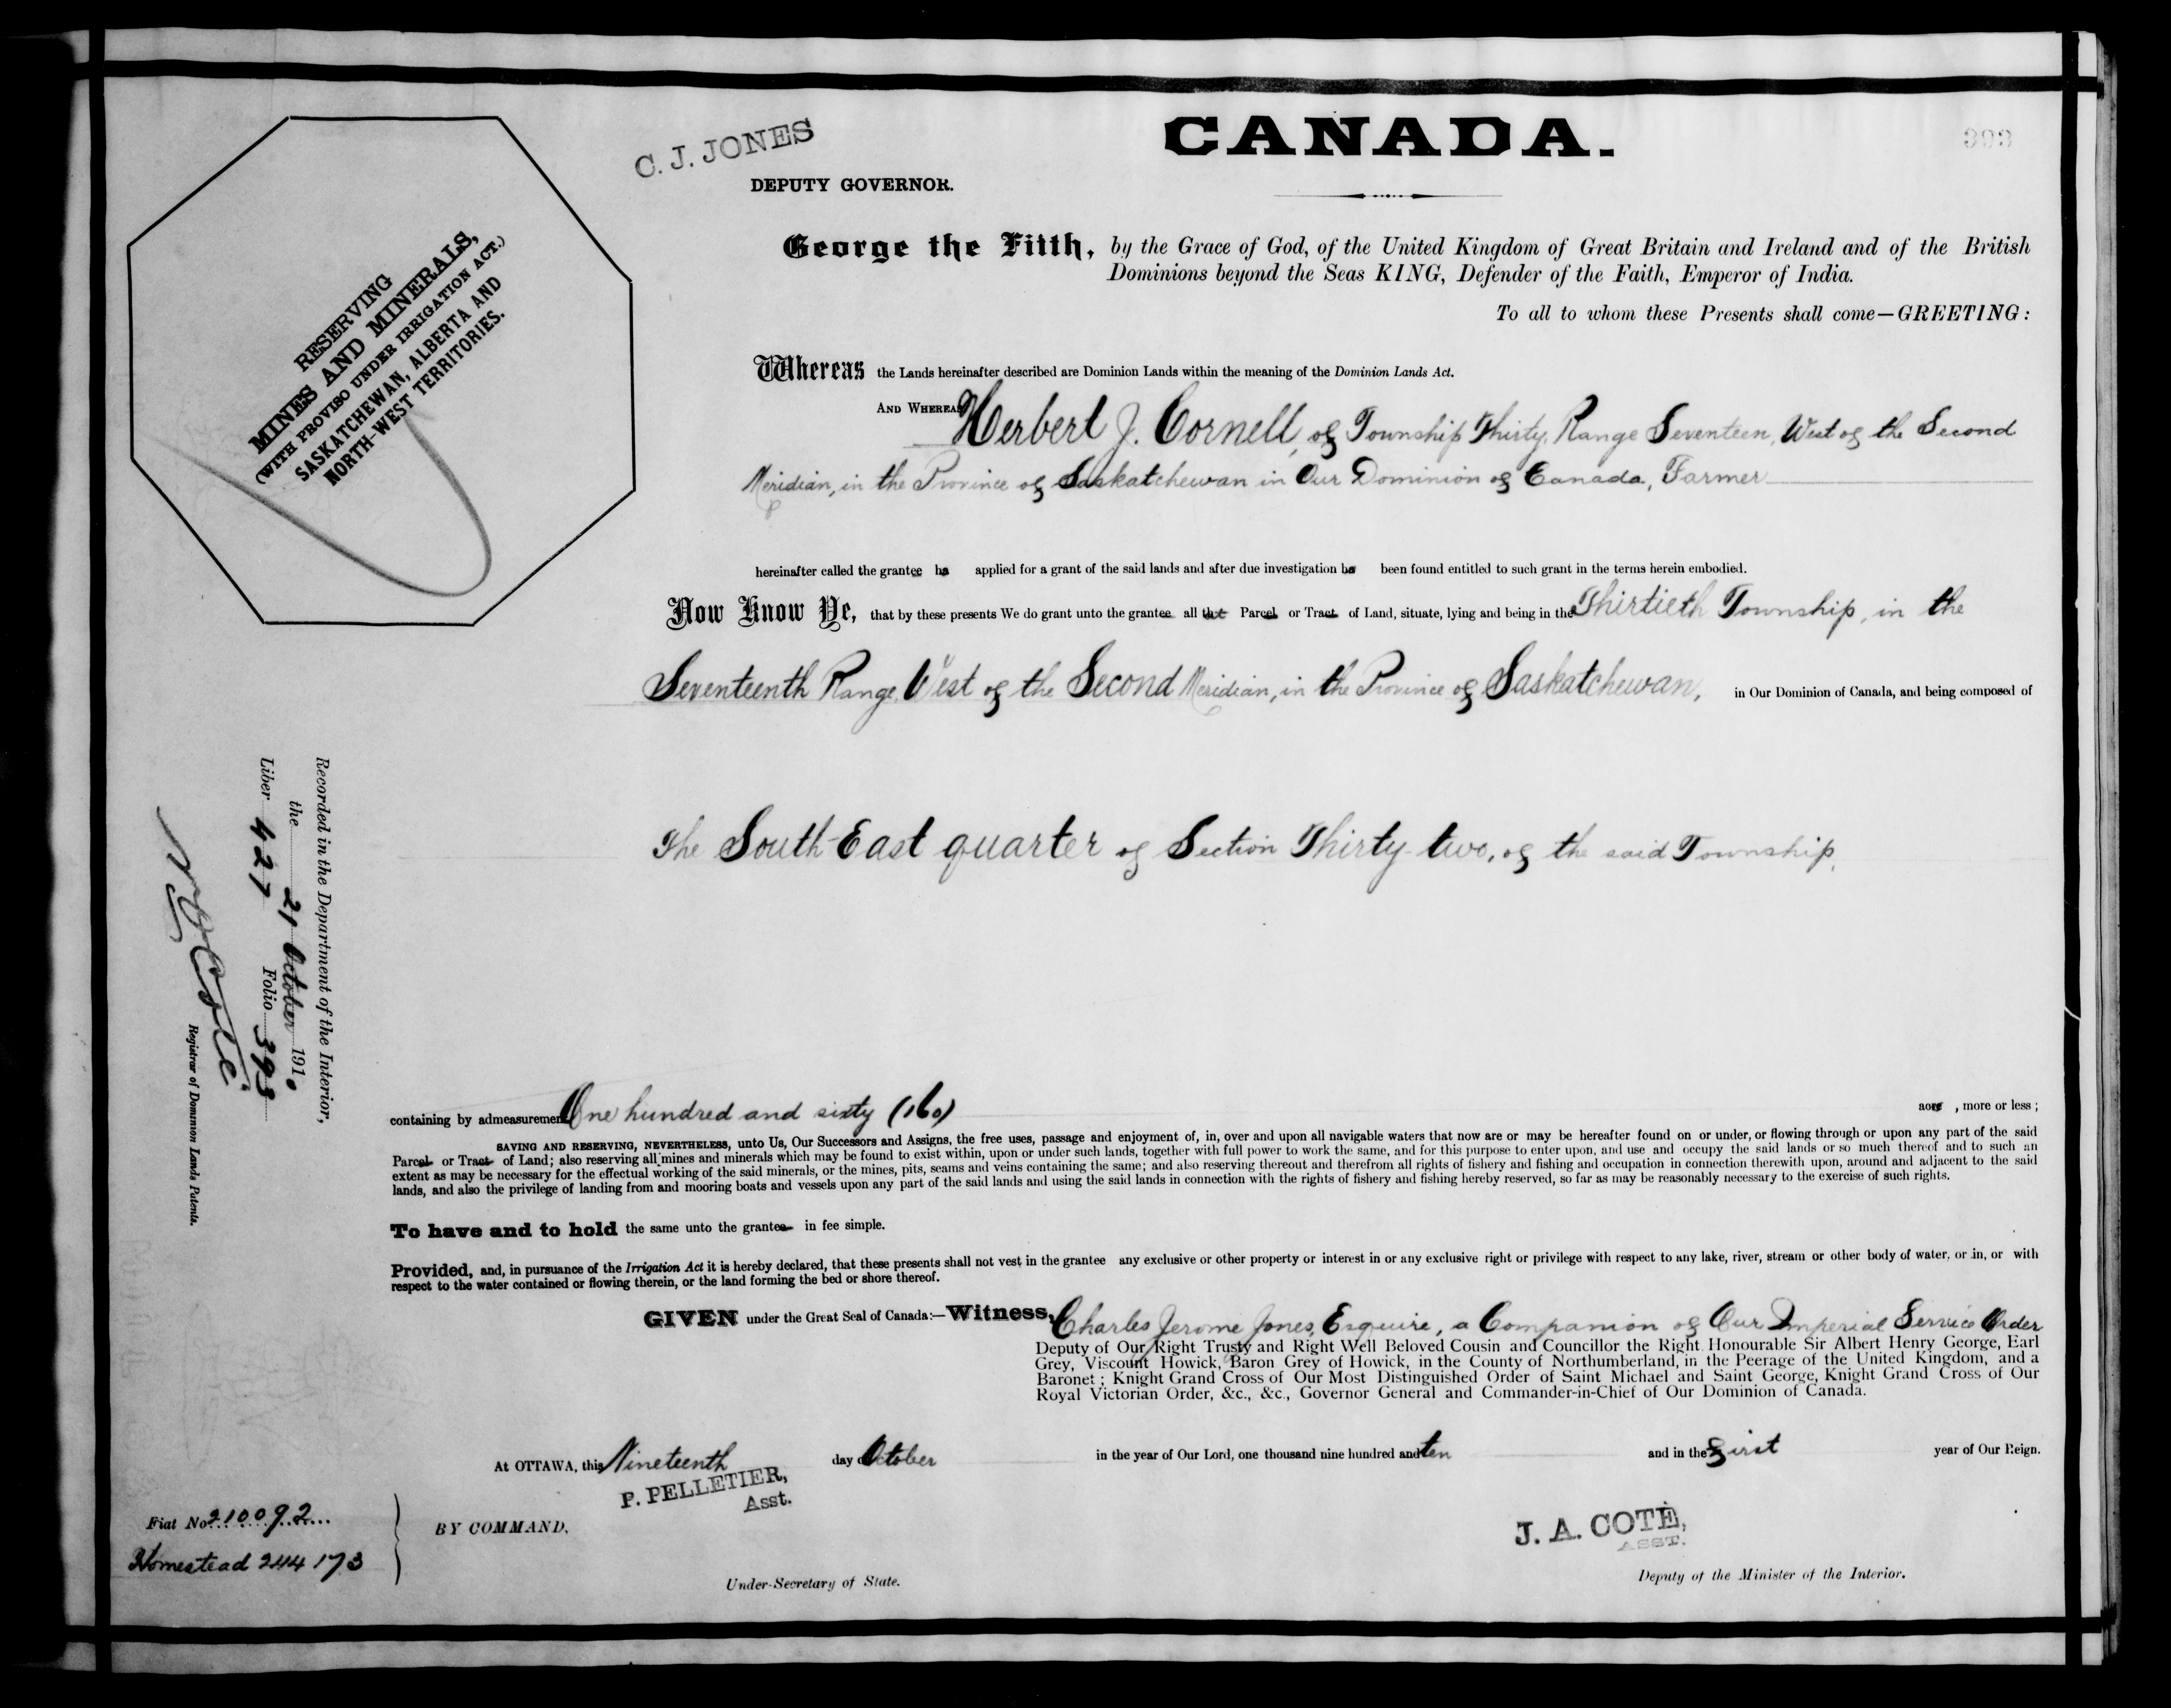 CANADA.
393
C. J. JONES
DEPUTY GOVERNOR.
RESERVING
MINES AND MINERALS,
(WITH PROVISO UNDER IRRIGATION ACT.)
SASKATCHEWAN, ALBERTA AND
NORTH-WEST TERRITORIES.
George the Fifth, by the Grace of God, of the United Kingdom of Great Britain and Ireland and of the British
Dominions beyond the Seas KING, Defender of the Faith, Emperor of India.
To all to whom these Presents shall come—GREETING:
Whereas the Lands hereinafter described are Dominion Lands within the meaning of the Dominion Lands Act.
AND WHEREAS Herbert J. Cornell, of Township Thirty, Range Seventeen, West of the Second
Meridian, in the Province of Saskatchewan in Our Dominion of Canada, Farmer
hereinafter called the grantee has applied for a grant of the said lands and after due investigation has been found entitled to such grant in the terms herein embodied.
Now Know Ye, that by these presents We do grant unto the grantee all that Parcel or Tract of Land, situate, lying and being in the Thirtieth Township, in the
Seventeenth Range, West of the Second Meridian, in the Province of Saskatchewan, in Our Dominion of Canada, and being composed of
The South-East quarter of Section Thirty-two, of the said Township,
containing by admeasurement One hundred and sixty (160) acres, more or less;
SAVING AND RESERVING, NEVERTHELESS, unto Us, Our Successors and Assigns, the free uses, passage and enjoyment of, in, over and upon all navigable waters that now are or may be hereafter found on or under, or flowing through or upon any part of the said
Parcel or Tract of Land; also reserving all mines and minerals which may be found to exist within, upon or under such lands, together with full power to work the same, and for this purpose to enter upon, and use and occupy the said lands or so much thereof and to such an
extent as may be necessary for the effectual working of the said minerals, or the mines, pits, seams and veins containing the same; and also reserving thereout and therefrom all rights of fishery and fishing and occupation in connection therewith upon, around and adjacent to the said
lands, and also the privilege of landing from and mooring boats and vessels upon any part of the said lands and using the said lands in connection with the rights of fishery and fishing hereby reserved, so far as may be reasonably necessary to the exercise of such rights.
To have and to hold the same unto the grantee in fee simple.
Provided, and, in pursuance of the Irrigation Act it is hereby declared, that these presents shall not vest in the grantee any exclusive or other property or interest in or any exclusive right or privilege with respect to any lake, river, stream or other body of water, or in, or with
respect to the water contained or flowing therein, or the land forming the bed or shore thereof.
GIVEN under the Great Seal of Canada:—Witness, Charles Jerome Jones, Esquire, a Companion of Our Imperial Service Order
Deputy of Our Right Trusty and Right Well Beloved Cousin and Councillor the Right Honourable Sir Albert Henry George, Earl
Grey, Viscount Howick, Baron Grey of Howick, in the County of Northumberland, in the Peerage of the United Kingdom, and a
Baronet; Knight Grand Cross of Our Most Distinguished Order of Saint Michael and Saint George, Knight Grand Cross of Our
Royal Victorian Order, &c., &c., Governor General and Commander-in-Chief of Our Dominion of Canada.
At OTTAWA, this Nineteenth day of October in the year of Our Lord, one thousand nine hundred and ten and in the First year of Our Reign.
P. PELLETIER,
Asst.
BY COMMAND,
Under-Secretary of State.
J. A. COTÉ,
ASST.
Deputy of the Minister of the Interior.
Fiat No. 210092
Homestead 244173
Recorded in the Department of the Interior,
the 21 October 1910
Liber 427 Folio 393
Coté
Registrar of Dominion Lands Patents.